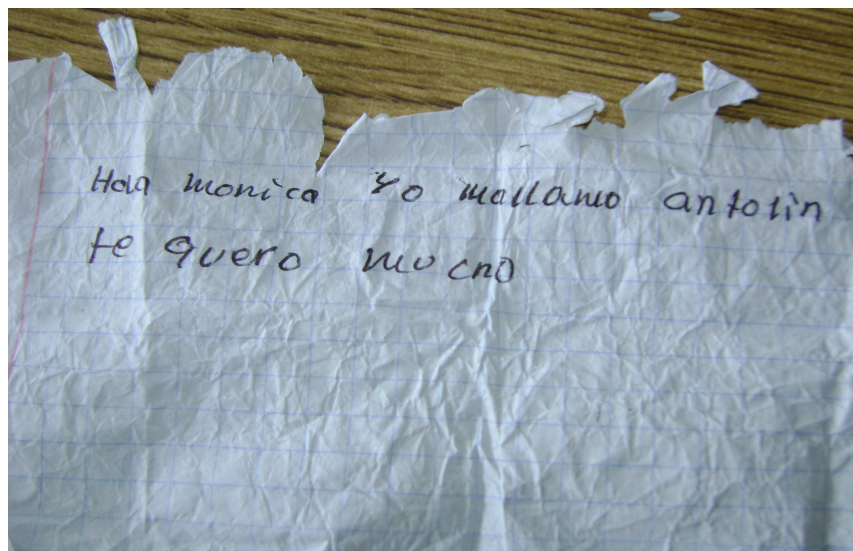 Hola monica Yo mallamo antolin
te quero mucho